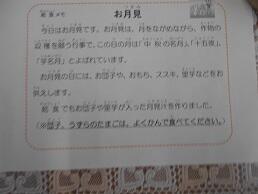 給食メモ
お月見
今日はお月見です。お月見は、月をながめながら、作物の
収穫を願う行事で、この日の月は「中秋の名月」「十五夜」
「芋名月」とよばれています。
お月見の日には、お団子や、おもち、ススキ、里芋などをお
供えします。
給食でもお団子や里芋が入った月見汁を作りました。
(※団子、うずらのたまごは、よくかんで食べてください。)